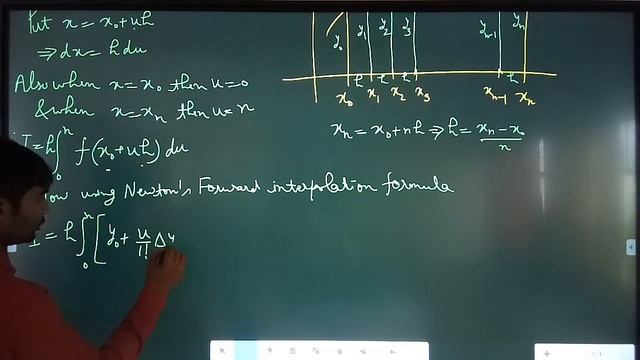 Put x = x₀+uh
⇒ dx = h du
Also when x = x₀ then u = 0
& when x = xₙ then u = n
I = h∫₀ⁿ f(x₀+uh) du
now using Newton's Forward interpolation formula
I = h∫₀ⁿ [ y₀ + u/1! Δy
y₀ y₁ y₂ y₃ yₙ₋₁ yₙ
h h h h
x₀ x₁ x₂ x₃ xₙ₋₁ xₙ
xₙ = x₀+nh ⇒ h = (xₙ-x₀)/n